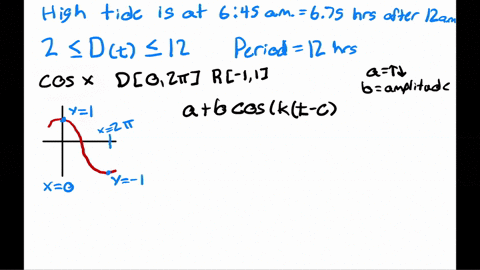 High tide is at 6:45 a.m. = 6.75 hrs after 12am
2 ≤ D(t) ≤ 12 Period = 12 hrs
cos x D[0,2π] R[-1,1]
a=↑↓
b=amplitude
a+b cos(k(t-c)
y=1
x=2π
x=0
y=-1